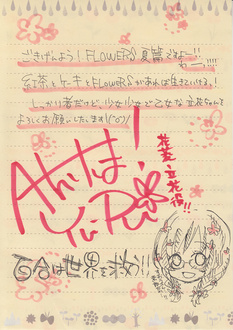 ごきげんよう！FLOWERS夏篇ですよー!!
わーい!!!!
紅茶とケーキとFLOWERSがあれば生きていける！
しっかり者だけど、少女少女と乙女な立花ちゃんを
よろしくお願いしたします(^o^)/
花菱 立花役!!
百合は世界を救う!!